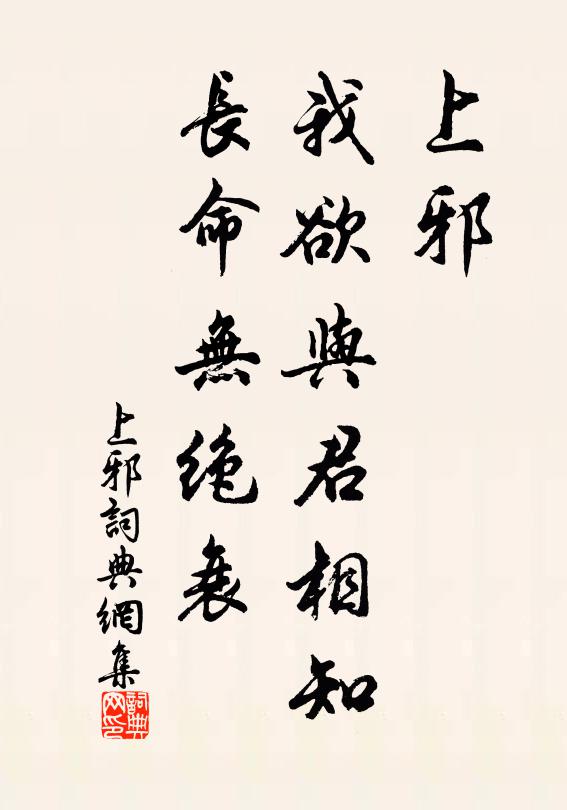 上邪
我欲與君相知
長命無絕衰
上邪詞典網集
詞典网印